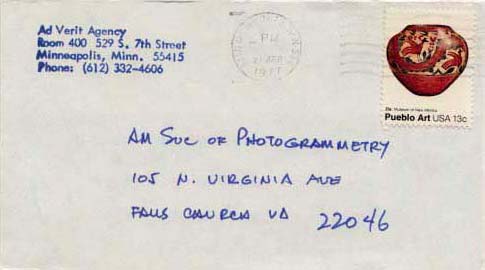 Ad Verit Agency
Room 400 529 S. 7th Street
Minneapolis, Minn. 55415
Phone: (612) 332-4606
PM
1977
Museum of New Mexico
Pueblo Art USA 13c
AM SOC OF PHOTOGRAMMETRY
105 N. VIRGINIA AVE
FALLS CHURCH VA 22046